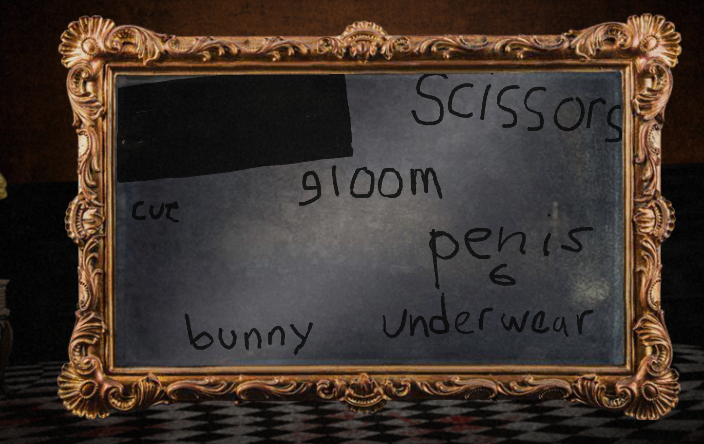 scissors
gloom
cut
penis
6
bunny
underwear